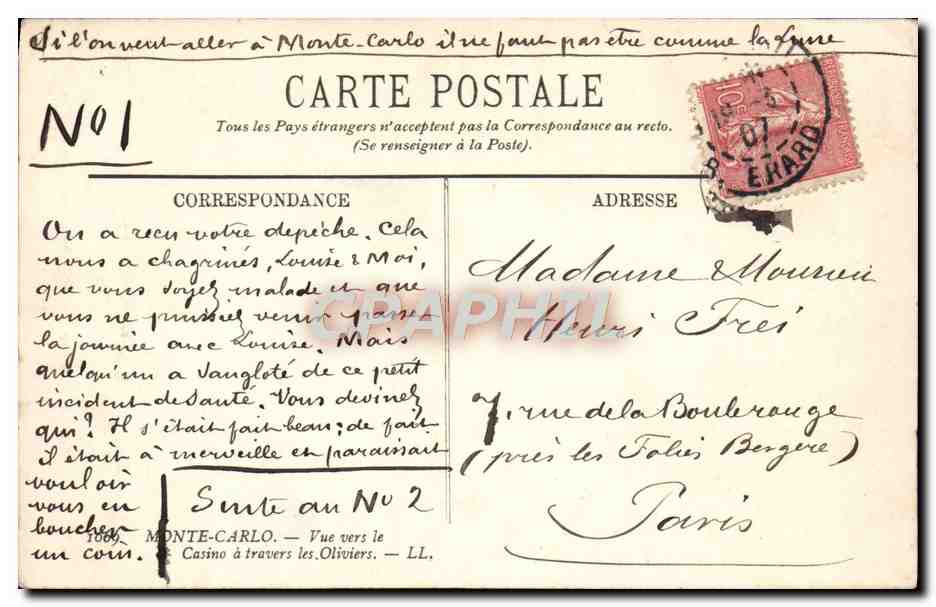 Si l'on veut aller à Monte-Carlo il ne faut pas être comme la Lune
CARTE POSTALE
No 1
Tous les Pays étrangers n'acceptent pas la Correspondance au recto.
(Se renseigner à la Poste).
10c
07
ERARD
CORRESPONDANCE
On a recu votre depèche. Cela
nous a chagrinés, Louise & Moi,
que vous soyez malade et que
vous ne pussiez venir passer
la journée avec Louise. Mais
quelqu'un a sangloté de ce petit
incident de santé. Vous devinez
qui? Il s'était fait beau; de fait
il était à merveille et paraissait
vouloir
vous en
boucher
un coin.
Suite au No 2
MONTE-CARLO. — Vue vers le
Casino à travers les Oliviers. — LL.
ADRESSE
Madame & Monsieur
Henri Frei
7. rue de la Boule rouge
(près les Folies Bergère)
Paris
CPAPHIL